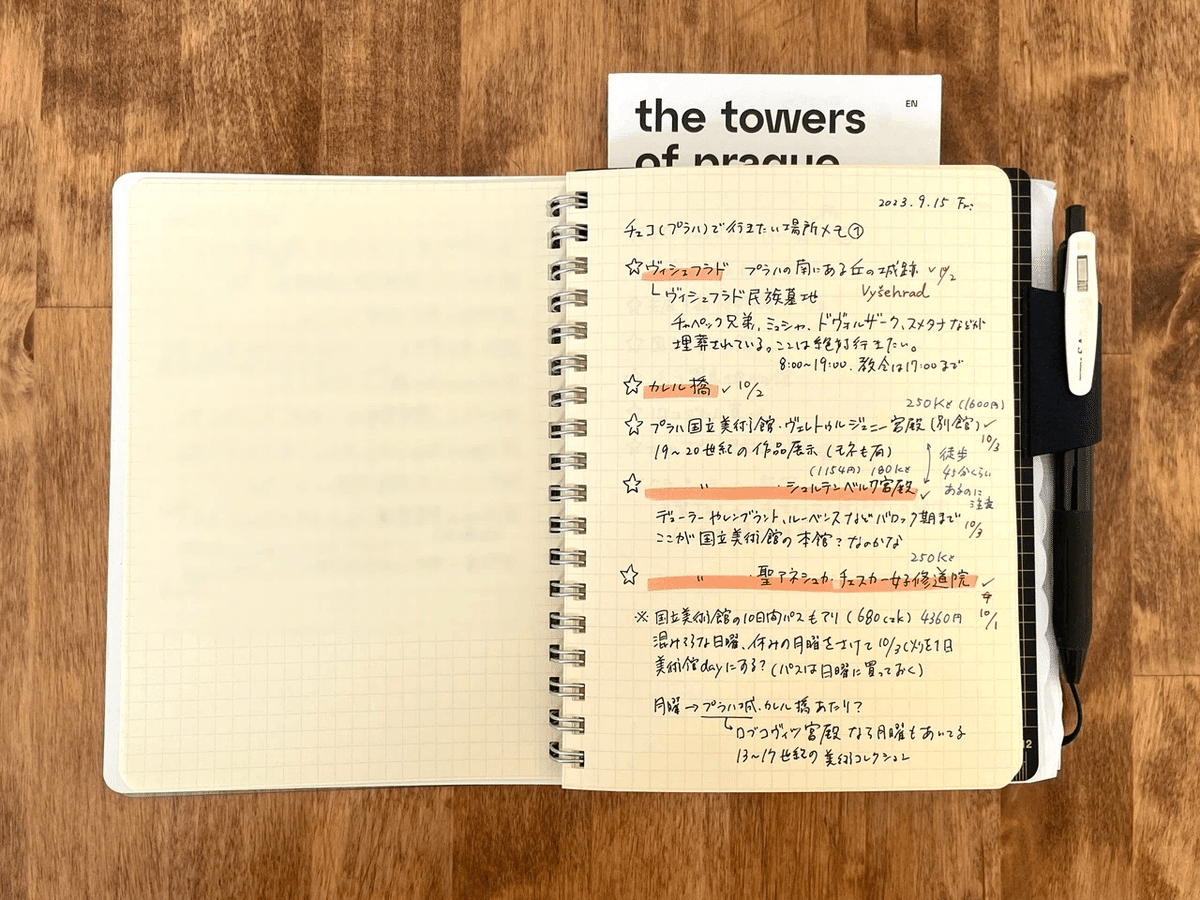 the towers
EN
of prague
2023.9.15 Fri.
チェコ(プラハ)で行きたい場所メモ①
☆ヴィシェフラド プラハの南にある丘の城跡 ✓ 10/2
└ヴィシェフラド民族墓地 Vyšehrad
チャペック兄弟、ミュシャ、ドヴォルザーク、スメタナなどが
埋葬されている。ここは絶対行きたい。
8:00~19:00. 教会は17:00まで
☆カレル橋 ✓ 10/2
250Kč (1600円)
☆プラハ国立美術館・ヴェレトゥルジュニー宮殿(別館) ✓
10/3
19~20世紀の作品展示(モネも有)
徒歩
45分くらい
あるのに
注意
(1154円) 180Kč
☆ 〃 ・シュルテンベルク宮殿 ✓
デューラーやレンブラント、ルーベンスなどバロック期まで 10/3
ここが国立美術館の本館?なのかな
250Kč
☆ 〃 ・聖アネシュカ・チェスカー女子修道院 ✓
10/1
※国立美術館の10日間パスもアリ(680czk) 4360円
混みそうな日曜、休みの月曜をさけて10/3(火)を1日
美術館dayにする?(パスは日曜に買っておく)
月曜→プラハ城、カレル橋あたり?
ロブコヴィツ宮殿なら月曜もあいてる
13~17世紀の美術コレクション
12